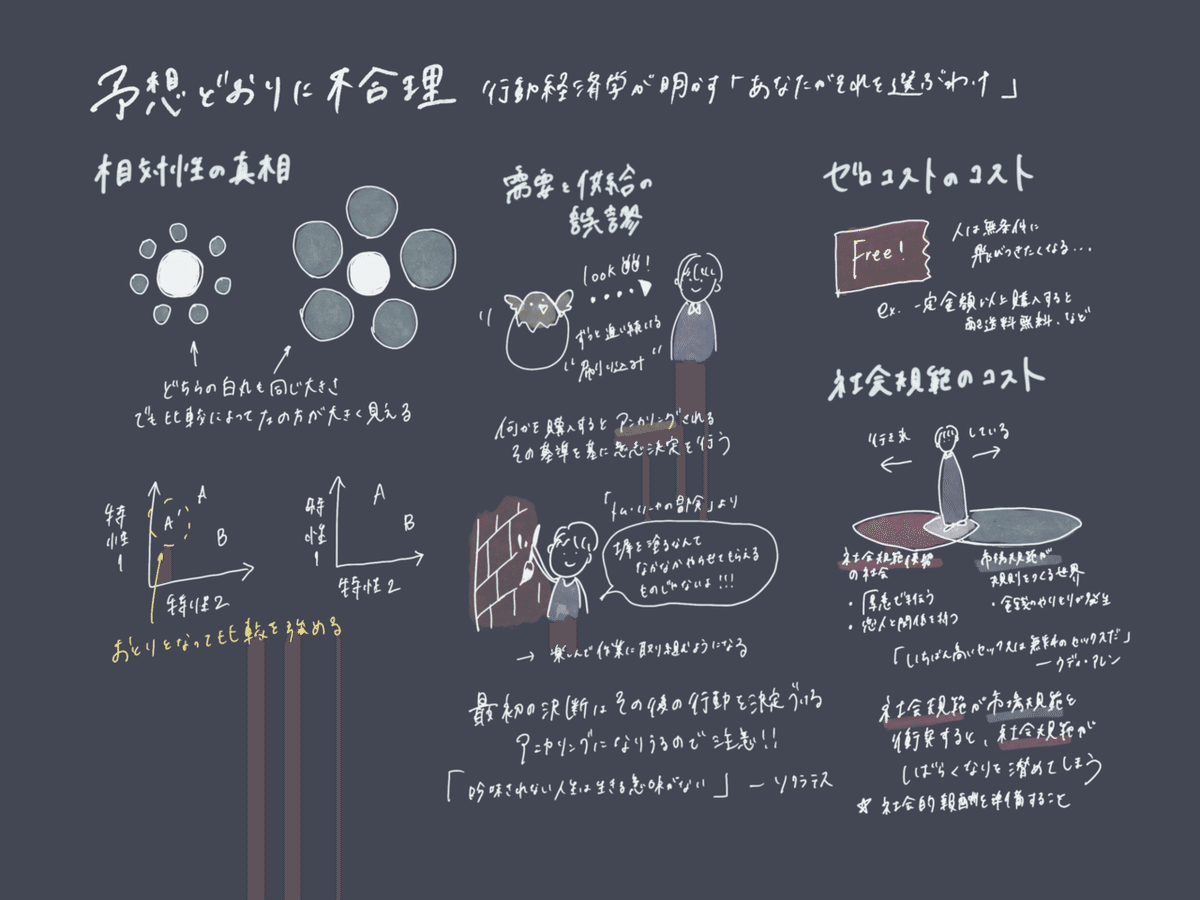 予想どおりに不合理 行動経済学が明かす「あなたがそれを選ぶわけ」
相対性の真相
どちらの白丸も同じ大きさ
でも比較によって左の方が大きく見える
特性1
A
A'
B
特性2
おとりとなって比較を強める
特性1
A
B
特性2
需要と供給の
誤謬
look 凹凹!
ずっと追い続ける
"刷り込み"
何かを購入するとアンカリングされる
その基準を基に意思決定を行う
「トム・ソーヤの冒険」より
塀を塗るなんて
なかなかやらせてもらえる
ものじゃないよ!!!
→ 楽しんで作業に取り組むようになる
最初の決断はその後の行動を決定づける
アンカリングになりうるので注意!!
「吟味されない人生は生きる意味がない」 ーソクラテス
ゼロコストのコスト
Free!
人は無条件に
飛びつきたくなる...
ex. 一定金額以上購入すると
配送料無料、など
社会規範のコスト
行き来
している
社会規範優勢
の社会
・厚意で手伝う
・恋人と関係を持つ
市場規範が
規則をつくる世界
・金銭のやりとりが発生
「いちばん高いセックスは無料のセックスだ」
ーウディ・アレン
社会規範が市場規範と
衝突すると、社会規範が
しばらくなりを潜めてしまう
☆ 社会的報酬を準備すること